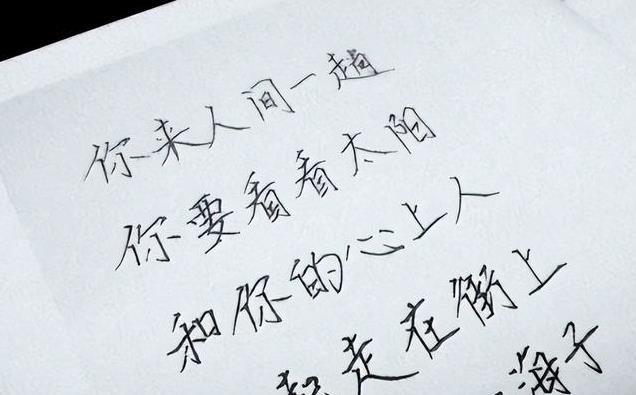 你来人间一趟
你要看看太阳
和你的心上人
起走在街上
海子